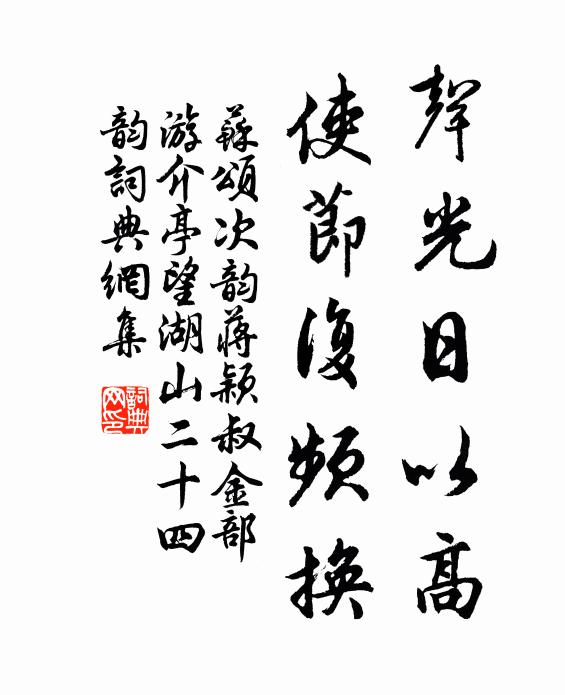 聲光日以高
使節復頻換
蘇頌次韵蔣穎叔金部
游介亭望湖山二十四
韵詞典網集
詞典網印